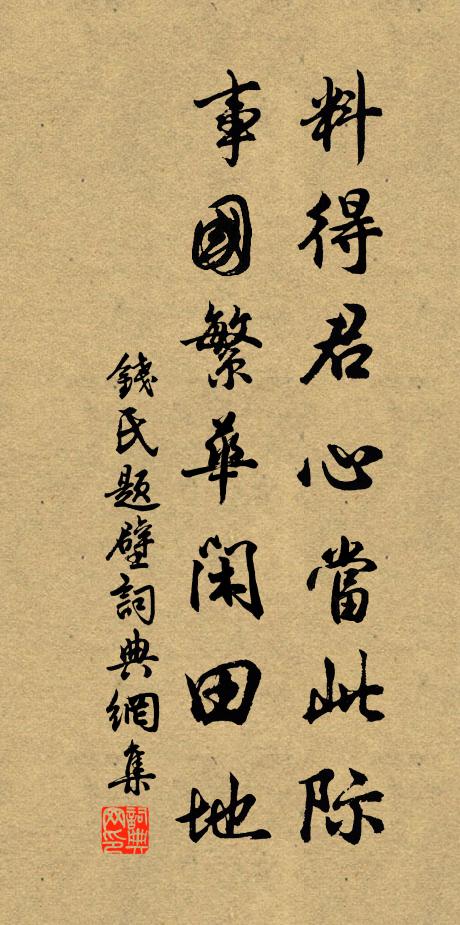 料得君心當此际
事國繁華閑田地
錢氏題壁詞典網集
詞典网印